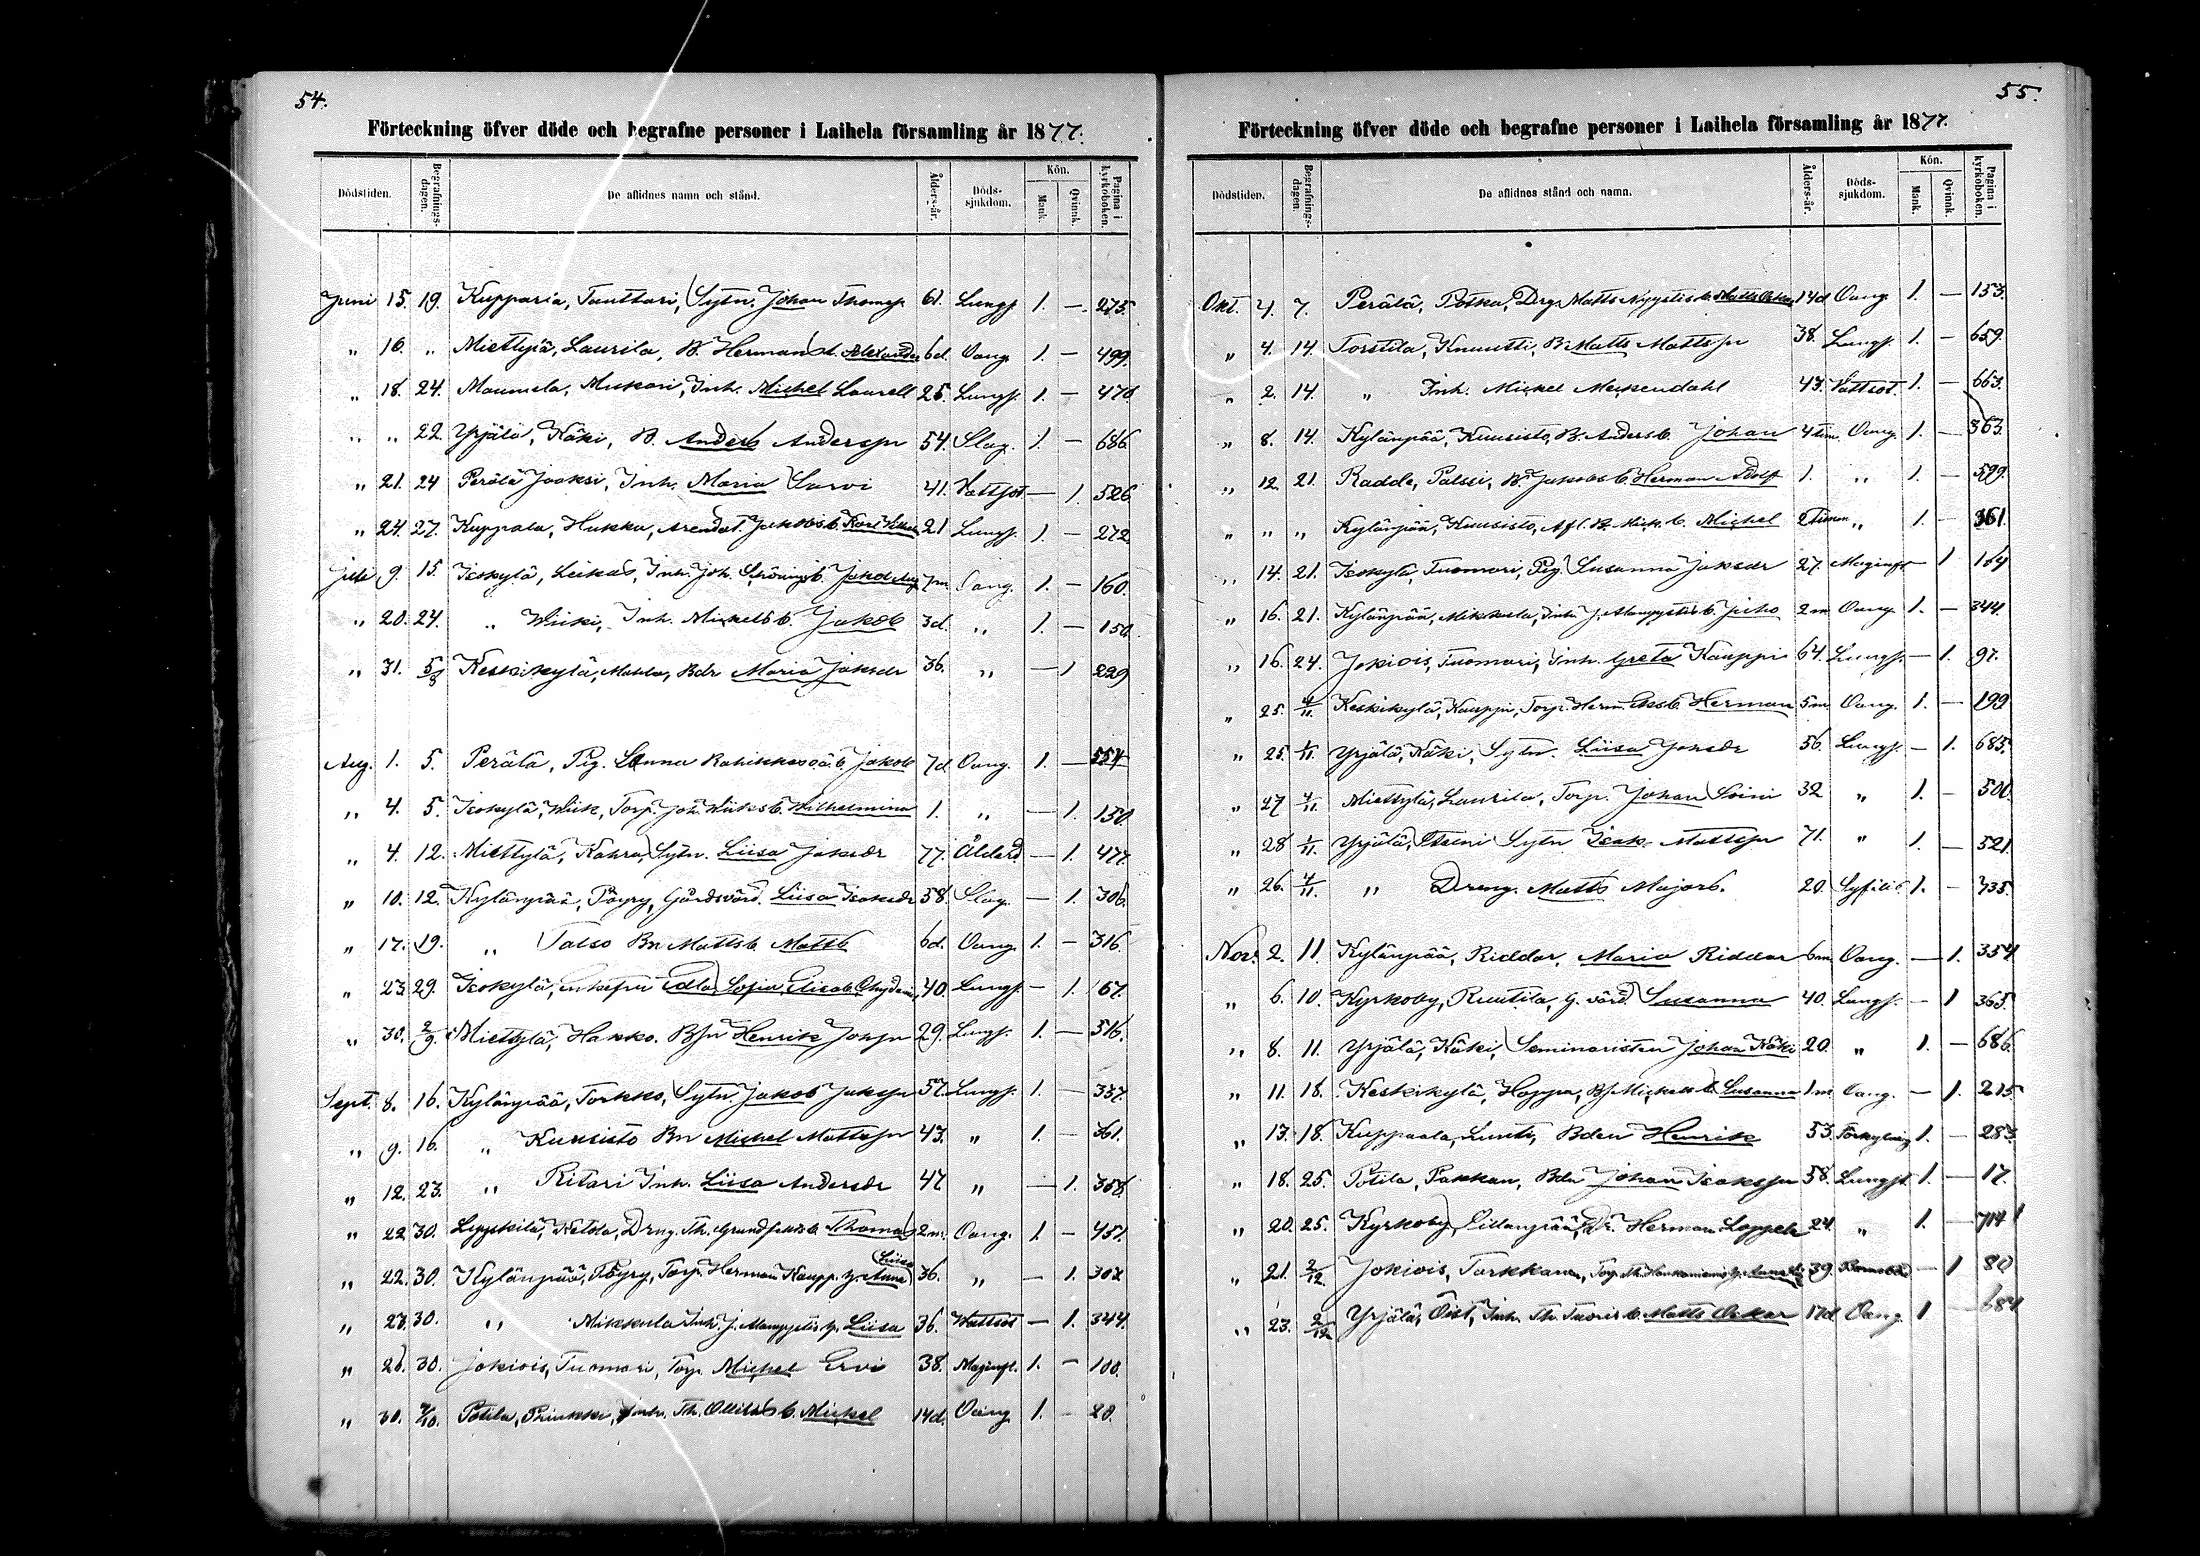 54.
Förteckning öfver döde och begrafne personer i Laihela församling år 1877.
Dödstiden. Begrafnings-dagen. De aflidnes namn och stånd. Ålders-år. Döds-sjukdom. Kön. Mank. Qvinnk. Pagina i kyrkoboken.
Juni 15. 19. Kupparla, Tanttari, Sytn. Johan Thomasp 61. Lungs. 1. — 275.
" 16. " Miettylä, Laurila, B. Herman s. Alexander 6d. Oang. 1. — 499.
" 18. 24. Maunula, Mukari, Inh. Michel Laurell 25. Lungs. 1. — 470
" " 22. Yrjälä, Käki, B. Anders Andersn 54. Slag. 1. — 686.
" 21. 24 Perälä Jaaksi, Inh. Maria Sarvi 41. Vattsot — 1. 526
" 24. 27. Kuppala, Hukka, Arend. Jakobs b. Karl 21 Lungs. 1. — 272
Juli 9. 15. Isokylä, Leikas, Inh. Joh. b. Jakob 7m. Oang. 1. — 160.
" 20. 24. " Wiiki, Inh. Mickels b. Jakob 3d. " 1. — 150.
" 31. 5/8 Keskikylä, Bdr Maria Jaksdr 36. " — 1 229
Aug. 1. 5. Perälä, Pig. Sanna b. Jakob 7d Oang. 1. — 554
" 4. 5. Isokylä, Wiik, Torp. Joh. Wiiks b. Wilhelmina 1. " — 1. 150.
" 4. 12. Miettylä, Kahra, Sytn. Liisa Jaksdr 77. Ålderd — 1. 477.
" 10. 12. Kylänpää, Pöyry, Gårdsvärd. Liisa Isaksdr 58. Slag. — 1. 306.
" 17. 19. " Talso Bn Matts b. Matts 6d. Oang. 1. — 316.
" 23. 29. Isokylä, Enkefru Edla Sofia Elisab. Chydenius 40. Lungs. — 1. 67.
" 30. 2/9. Miettylä, Hakko. Bsn Henrik Johsn 29. Lungs. 1. — 516.
Sept. 8. 16. Kylänpää, Torkko, Sytn. Jakob Jaksn 57. Lungs. 1. — 337.
" 9. 16. " Kuusisto Bn Michel Mattssn 43. " 1. — 361.
" 12. 23. " Ritari Inh. Liisa Andersdr 47 " — 1. 358.
" 22 30. Lyyskilä, Ketola, Drng. Th. b. Thomas 2m. Oang. 1 — 451.
" 22. 30. Kylänpää, Pöyry, Torp. Herman Kaupp. h. Anna Liisa 36. " — 1. 302
" 27. 30. " Mikkula Inh. J. h. Liisa 36. Wattsot — 1. 344.
" 28. 30. Jokiois, Tuomari, Torp. Michel Ervi 38. Maginfl. 1. — 100.
" 30. 7/10. Potila, Prinkki, Inh. Th. Ollilas b. Mickel 14d. Oang 1. — 20.
55.
Förteckning öfver döde och begrafne personer i Laihela församling år 1877.
Dödstiden. Begrafnings-dagen. De aflidnes stånd och namn. Ålders-år. Döds-sjukdom. Kön. Mank. Qvinnk. Pagina i kyrkoboken.
Okt. 4. 7. Perälä, Potka, Drg. Matts b. Matts Oskar 14d Oang. 1. — 153.
" 4. 14. Torstila, Knuutti, B. Matts Mattssn 38. Lungs. 1. — 659.
" 2. 14. " Inh. Mickel 43. Vattsot. 1. — 663.
" 8. 14. Kylänpää, Kuusisto, B. Anders b. Johan 4 tim. Oang. 1. — 363.
" 12. 21. Radda, Palssi, B. Jakobs b. Herman Adolf 1. " 1. — 599.
" " " Kylänpää, Kuusisto, Afl. B. Mick. b. Michel 2 timm " 1. — 361.
" 14. 21. Isokylä, Tuomari, Pig. Susanna Jaksdr 27 Maginfl — 1 164
" 16. 21. Kylänpää, Mikkula, Inh. J. b. Juho 2m Oang. 1. — 344.
" 16. 24. Jokiois, Tuomari, Inh. Greta Kauppi 64. Lungs. — 1. 97.
" 25. 4/11. Keskikylä, Kauppi, Torp. Herm. b. Herman 5m Oang. 1. — 199
" 25. 1/11. Yrjälä, Käki, Sytn. Liisa Jaksdr 56. Lungs. — 1. 685.
" 27 4/11. Miettylä, Laurila, Torp. Johan Soini 32 " 1. — 500.
" 28 1/11. Yrjälä, Sytn Isak Mattssn 71. " 1. — 521.
" 26. 4/11. " Dreng. Matts Majors. 20. Syfilis 1. — 735.
Nov. 2. 11. Kylänpää, Riddar, Maria Riddar 6m Oang. — 1. 354
" 6. 10. Kyrkoby, Ruutila, G. värd. Susanna 40. Lungs. — 1 365.
" 8. 11. Yrjälä, Käki, Seminaristen Johan Käki 20. " 1. — 686.
" 11. 18. Keskikylä, Hoppa, Bs Mickels b. Susanna 1m Oang. — 1. 215.
" 13. 18. Kuppaala, Lunti, Bden Henrik 53. Förkylning 1. — 283.
" 18. 25. Potila, Pakkan, Bdn Johan Isakssn 58. Lungs. 1. — 17.
" 20. 25. Kyrkoby, Sillanpää, Dr. Herman 24. " 1. — 714
" 21. 2/12. Jokiois, Torkkanen, Torp. Th. h. 39. Barnsbörd — 1 80
" 23. 2/12 Yrjälä, Öist, Inh. Th. b. Matts Oskar 17d Oang. 1 — 684